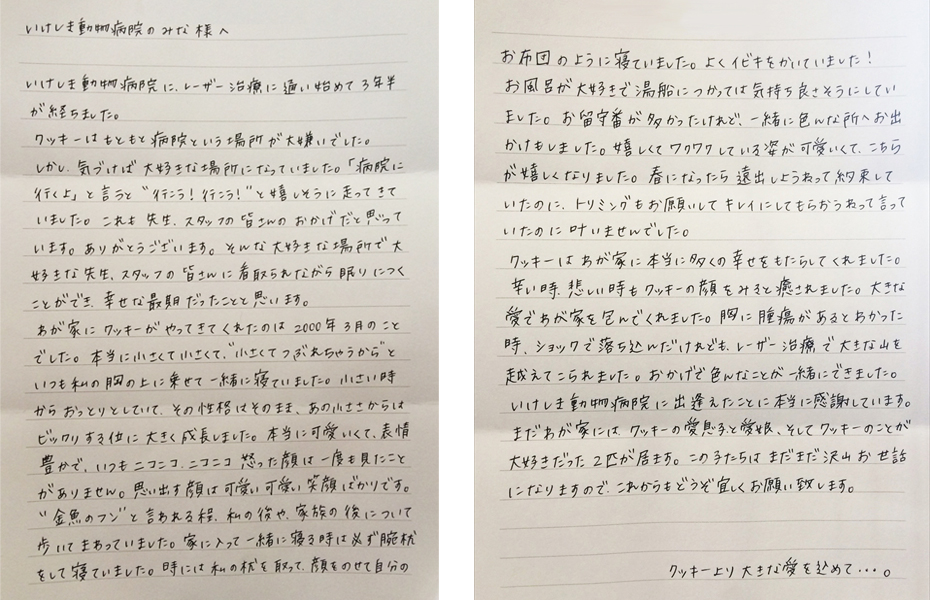 いけしま動物病院のみな様へ
いけしま動物病院に、レーザー治療に通い始めて3年半
が経ちました。
クッキーはもともと病院という場所が大嫌いでした。
しかし、気づけば大好きな場所になっていました。「病院に
行くよ」と言うと“行こう!行こう!”と嬉しそうに走ってきて
いました。これも先生、スタッフの皆さんのおかげだと思って
います。ありがとうございます。そんな大好きな場所で大
好きな先生、スタッフの皆さんに看取られながら眠りにつく
ことができ、幸せな最期だったことと思います。
わが家にクッキーがやってきてくれたのは2000年3月のこと
でした。本当に小さくて小さくて、“小さくてつぶれちゃうから”と
いつも私の胸の上に乗せて一緒に寝ていました。小さい時
からおっとりとしていて、その性格はそのまま、あの小ささからは
ビックリする位に大きく成長しました。本当に可愛いくて、表情
豊かで、いつもニコニコ、ニコニコ怒った顔は一度も見たこと
がありません。思い出す顔は可愛い可愛い笑顔ばかりです。
“金魚のフン”と言われる程、私の後や、家族の後について
歩いてまわっていました。家に入って一緒に寝る時は必ず腕枕
をして寝ていました。時には私の枕を取って、顔をのせて自分の
お布団のように寝ていました。よくイビキをかいていました!
お風呂が大好きで湯船につかっては気持ち良さそうにしてい
ました。お留守番が多かったけれど、一緒に色んな所へお出
かけもしました。嬉しくてワクワクしている姿が可愛いくて、こちら
が嬉しくなりました。春になったら遠出しようねって約束して
いたのに、トリミングもお願いしてキレイにしてもらおうねって言って
いたのに叶いませんでした。
クッキーはわが家に本当に多くの幸せをもたらしてくれました。
辛い時、悲しい時もクッキーの顔をみると癒されました。大きな
愛でわが家を包んでくれました。胸に腫瘍があるとわかった
時、ショックで落ち込んだけれども、レーザー治療で大きな山を
越えてこられました。おかげで色んなことが一緒にできました。
いけしま動物病院に出逢えたことに本当に感謝しています。
まだわが家には、クッキーの愛息子と愛娘、そしてクッキーのことが
大好きだった2匹が居ます。この子たちはまだまだ沢山お世話
になりますので、これからもどうぞ宜しくお願い致します。
クッキーより大きな愛を込めて・・・。